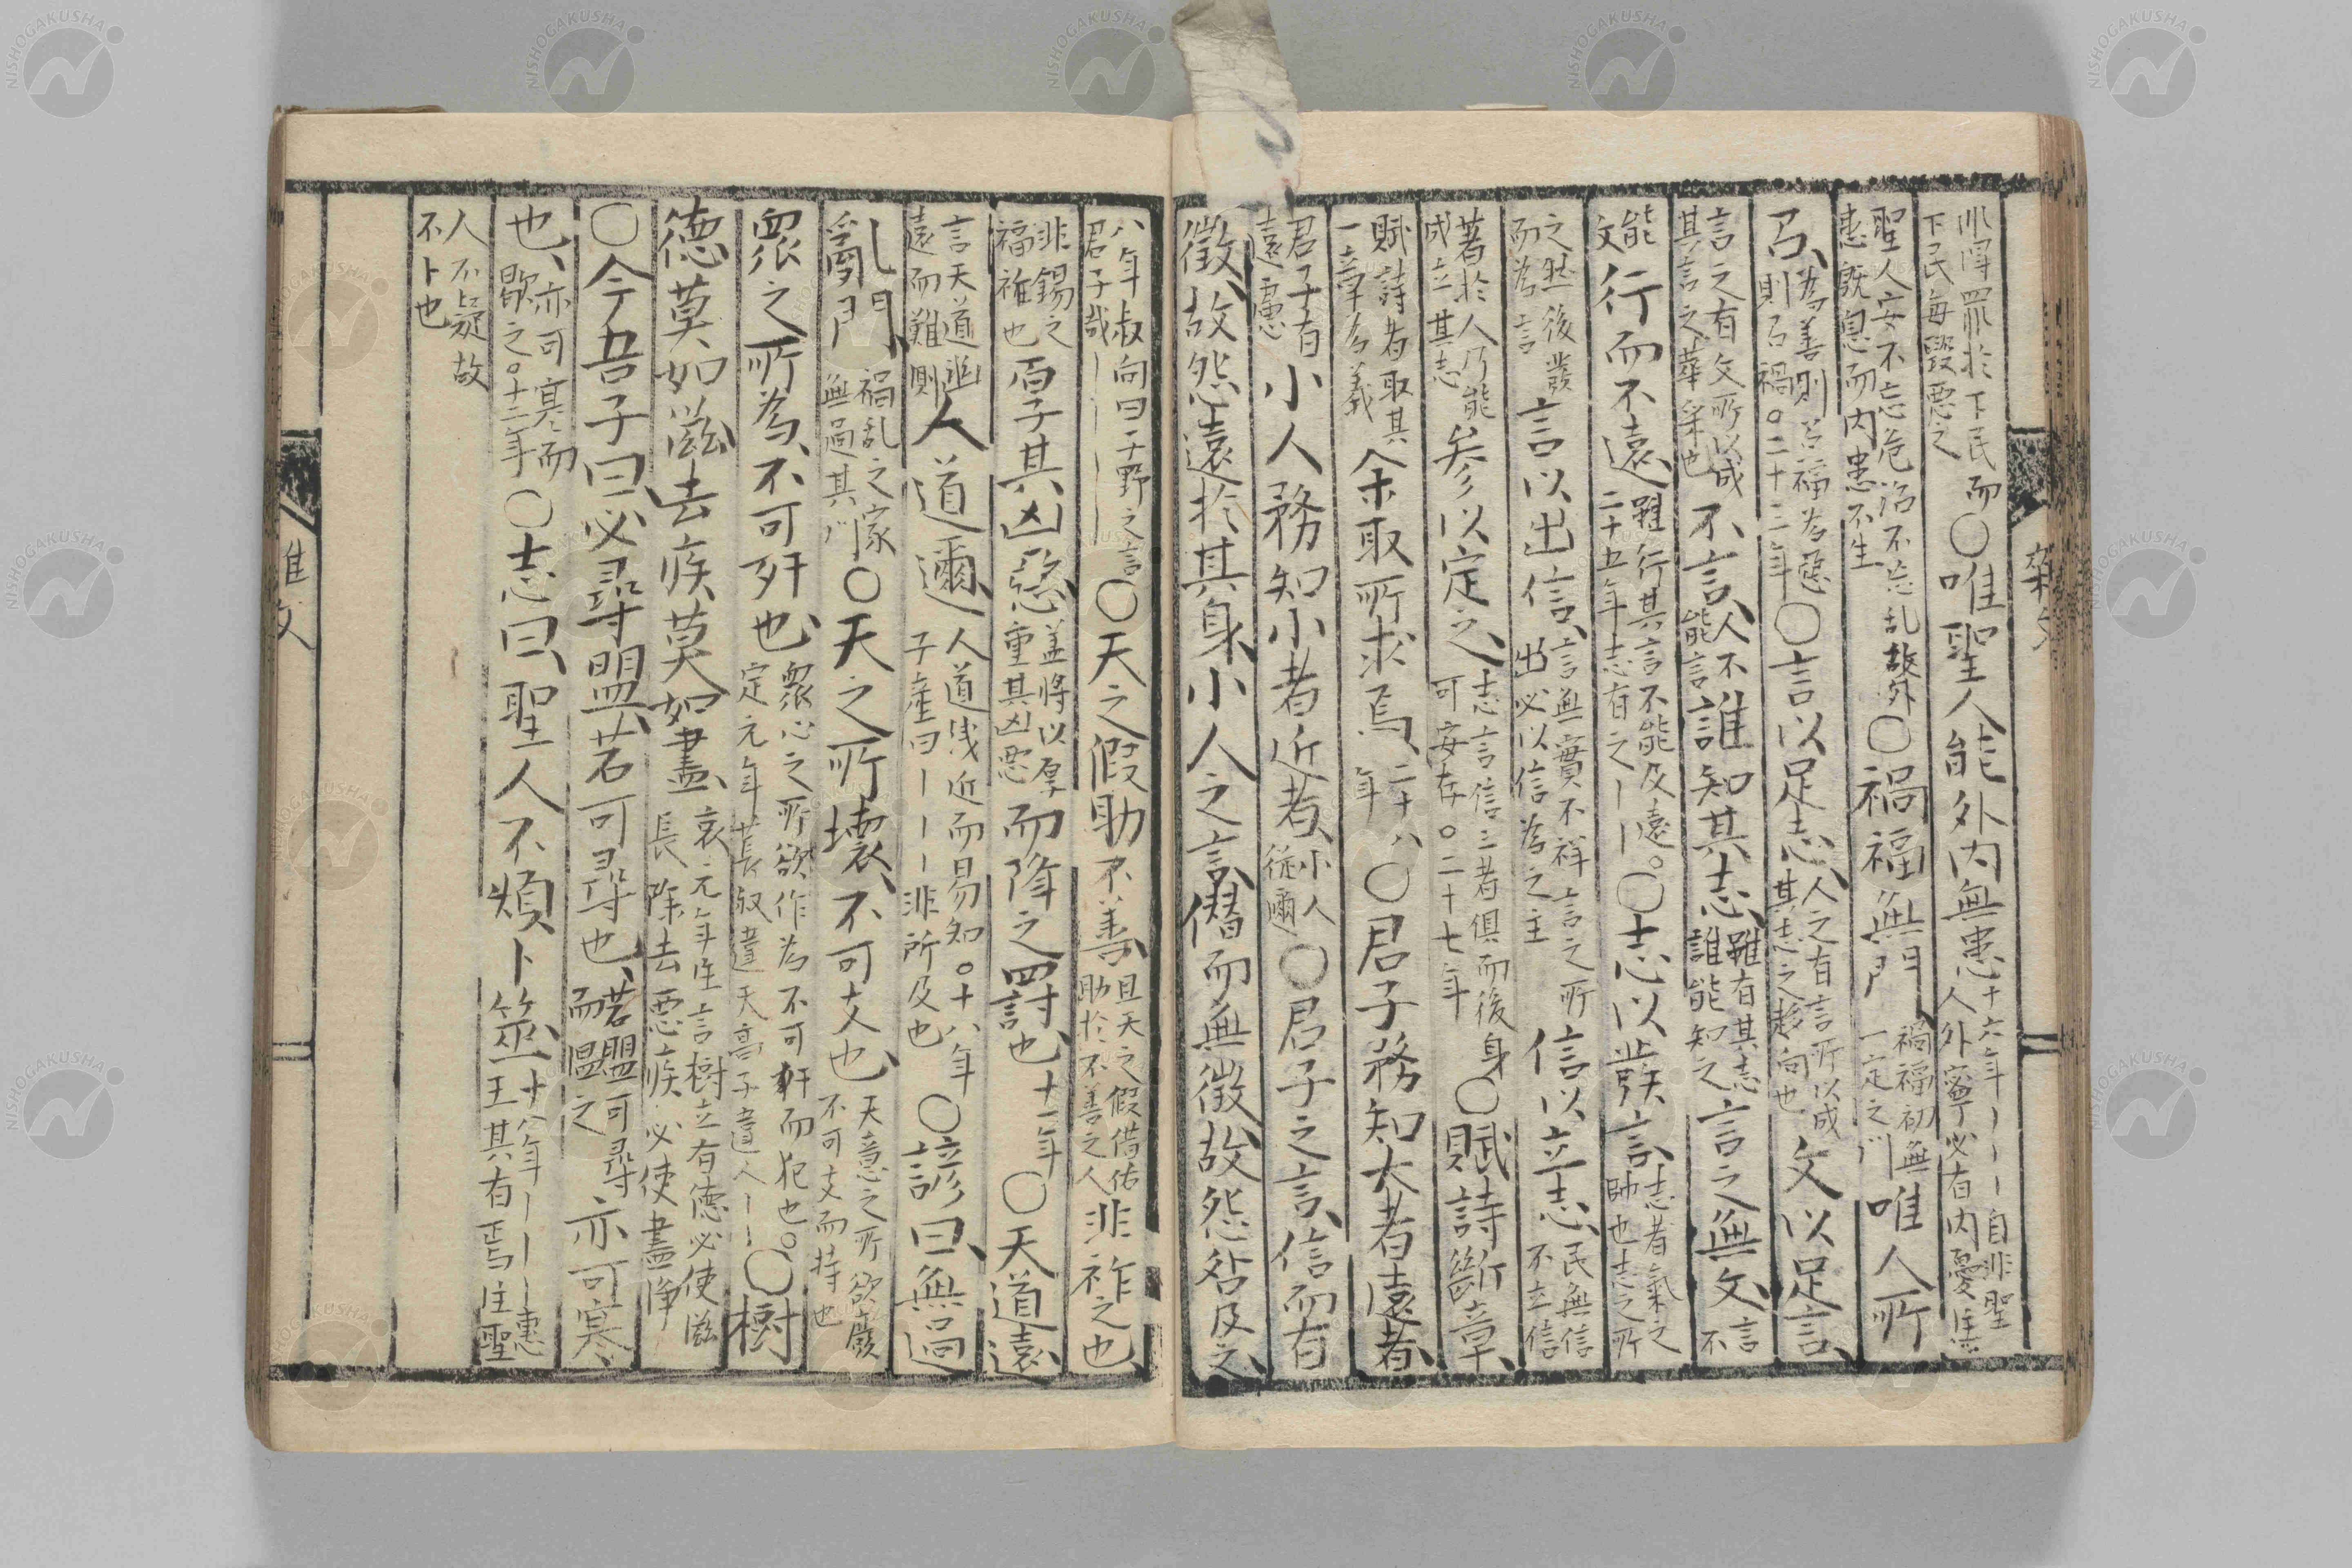 下民每毀惡之 ○唯聖人能外內無患 十六年｜｜｜自非聖人外寧必有內憂註
聖人安不忘危治不忘乱故外患既息而內患不生 ○禍福無門 禍福初無一定之門 唯人所
召 為善則召福為惡則召禍○二十三年 ○言以足志 人之有言所以成其志之趍向也 文以足言
言之有文所以成其言之華采也 不言 人不能言 誰知其志 雖有其志誰能知之 言之無文 言不
能文 行而不遠 雖行其言不能及遠○二十五年志有之｜｜ ○志以發言 志者氣之帥也志之所
之然後發而為言 言以出信 言無實不祥言之所出必以信為之主 信以立志 民無信不立信
著於人乃能成立其志 參以定之 志言信三者俱而後身可安存○二十七年 ○賦詩斷章
賦詩者取其一章為義 余取所求焉 二十八年 ○君子務知大者遠者
君子有遠慮 小人務知小者近者 小人從邇 ○君子之言信而有
徵故怨遠於其身小人之言僭而無徵故怨咎及之
八年叔向曰子野之言君子哉｜｜｜ ○天之假助不善 且天之假借佑助於不善之人 非祚之也
非錫之福祚也 厚其凶惡 盖將以厚重其凶惡 而降之罸也 十一年 ○天道遠
言天道幽遠而難測 人道邇 人道浅近而易知○十八年子產曰｜｜｜非所及也 ○諺曰無過
亂門 禍乱之家無過其門 ○天之所壞不可支也 天意之所欲廢不可支而持也
眾之所為不可奸也 眾心之所欲作為不可軒而犯也○定元年萇叔違天高子違人｜｜ ○樹
德莫如滋去疾莫如盡 哀元年註言樹立有德必使滋長除去惡疾必使盡淨
○今吾子曰必尋盟若可尋也 若盟可尋而溫之 亦可寒
也 亦可寒而歇之○十二年 ○志曰聖人不煩卜筮 十八年｜｜｜惠王其有焉註聖
人不疑故不卜也
雜文